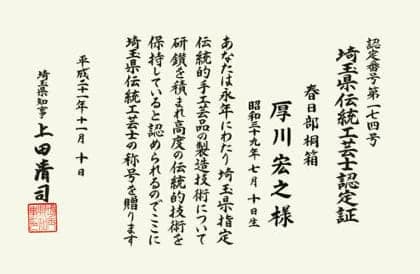 認定番号第一七四号
埼玉県伝統工芸士認定証
春日部桐箱
厚川宏之様
昭和三十九年七月十日生
あなたは永年にわたり埼玉県指定
伝統的手工芸品の製造技術について
研鑽を積まれ高度の伝統的技術を
保持していると認められるのでここに
埼玉県伝統工芸士の称号を贈ります
平成二十一年十一月十日
埼玉県知事上田清司